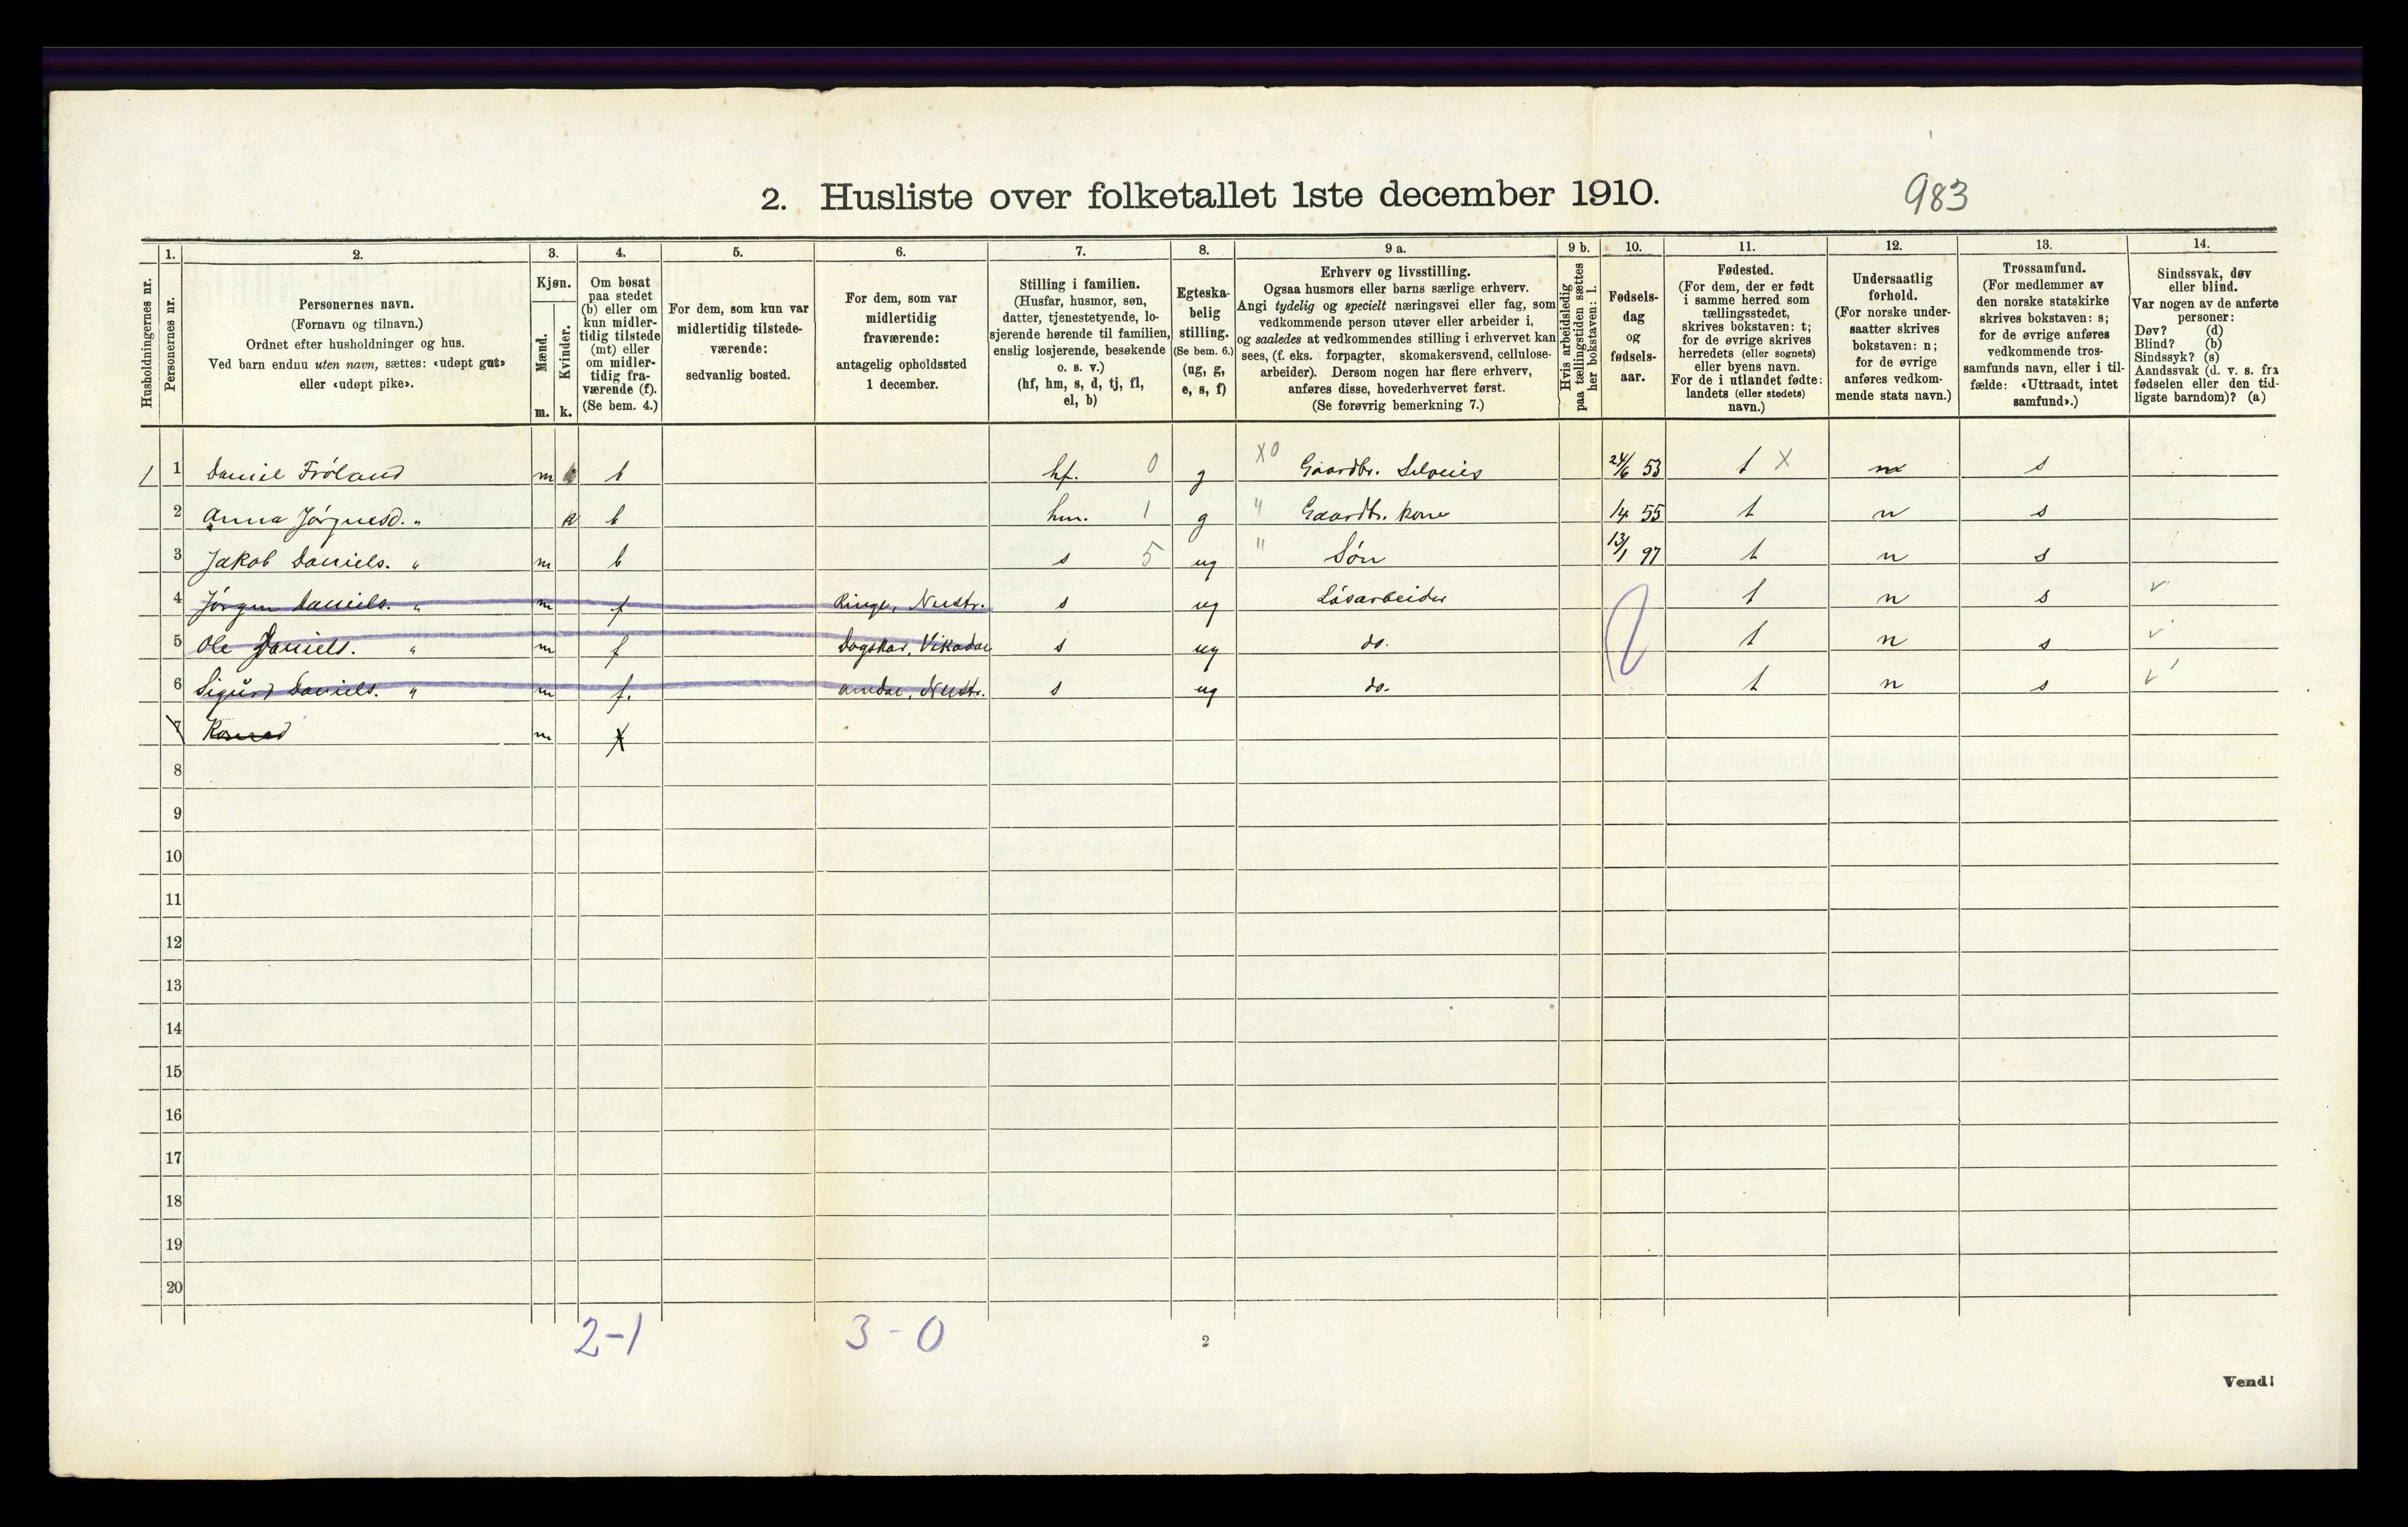 2. Husliste over folketallet 1ste december 1910.
983
Husholdningernes nr.
1.
Personernes nr.
2.
Personernes navn.
(Fornavn og tilnavn.)
Ordnet efter husholdninger og hus.
Ved barn endnu uten navn, sættes: «udøpt gut»
eller «udøpt pike».
3.
Kjøn.
Mænd.
m.
Kvinder.
k.
4.
Om bosat
paa stedet
(b) eller om
kun midler-
tidig tilstede
(mt) eller
om midler-
tidig fra-
værende (f).
(Se bem. 4.)
5.
For dem, som kun var
midlertidig tilstede-
værende:
sedvanlig bosted.
6.
For dem, som var
midlertidig
fraværende:
antagelig opholdssted
1 december.
7.
Stilling i familien.
(Husfar, husmor, søn,
datter, tjenestetyende, lo-
sjerende hørende til familien,
enslig losjerende, besøkende
o. s. v.)
(hf, hm, s, d, tj, fl,
el, b)
8.
Egteska-
belig
stilling.
(Se bem. 6.)
(ug, g,
e, s, f)
9 a.
Erhverv og livsstilling.
Ogsaa husmors eller barns særlige erhverv.
Angi tydelig og specielt næringsvei eller fag, som
vedkommende person utøver eller arbeider i,
og saaledes at vedkommendes stilling i erhvervet kan
sees, (f. eks.: forpagter, skomakersvend, cellulose-
arbeider). Dersom nogen har flere erhverv,
anføres disse, hovederhvervet først.
(Se forøvrig bemerkning 7.)
9 b.
Hvis arbeidsledig
paa tællingstiden sættes
her bokstaven: l.
10.
Fødsels-
dag
og
fødsels-
aar.
11.
Fødested.
(For dem, der er født
i samme herred som
tællingsstedet,
skrives bokstaven: t;
for de øvrige skrives
herredets (eller sognets)
eller byens navn.
For de i utlandet fødte:
landets (eller stedets)
navn.)
12.
Undersaatlig
forhold.
(For norske under-
saatter skrives
bokstaven: n;
for de øvrige
anføres vedkom-
mende stats navn.)
13.
Trossamfund.
(For medlemmer av
den norske statskirke
skrives bokstaven: s;
for de øvrige anføres
vedkommende tros-
samfunds navn, eller i til-
fælde: «Uttraadt, intet
samfund».)
14.
Sindssvak, døv
eller blind.
Var nogen av de anførte
personer:
Døv? (d)
Blind? (b)
Sindssyk? (s)
Aandssvak (d. v. s. fra
fødselen eller den tid-
ligste barndom)? (a)
1 1 Daniel Fröland m b hf. 0 g X0 Gaardbr. Selveier 24/6 53 t X n s
2 Anna Jörgnesd. " k b hm. 1 g " Gaardbr. kone 14 55 t n s
3 Jakob Daniels. " m b s 5 ug " Sön 13/1 97 t n s
4 Jörgen Daniels. " m f Ringe, Nestr. s ug Lösarbeider t n s v
5 Ole Daniels. " m f Vikadal s ug do. t n s v
6 Sigurd Daniels. " m f. Nestr. s ug do. t n s v
7 m
8
9
10
11
12
13
14
15
16
17
18
19
20
2-1 3-0
2
Vend!